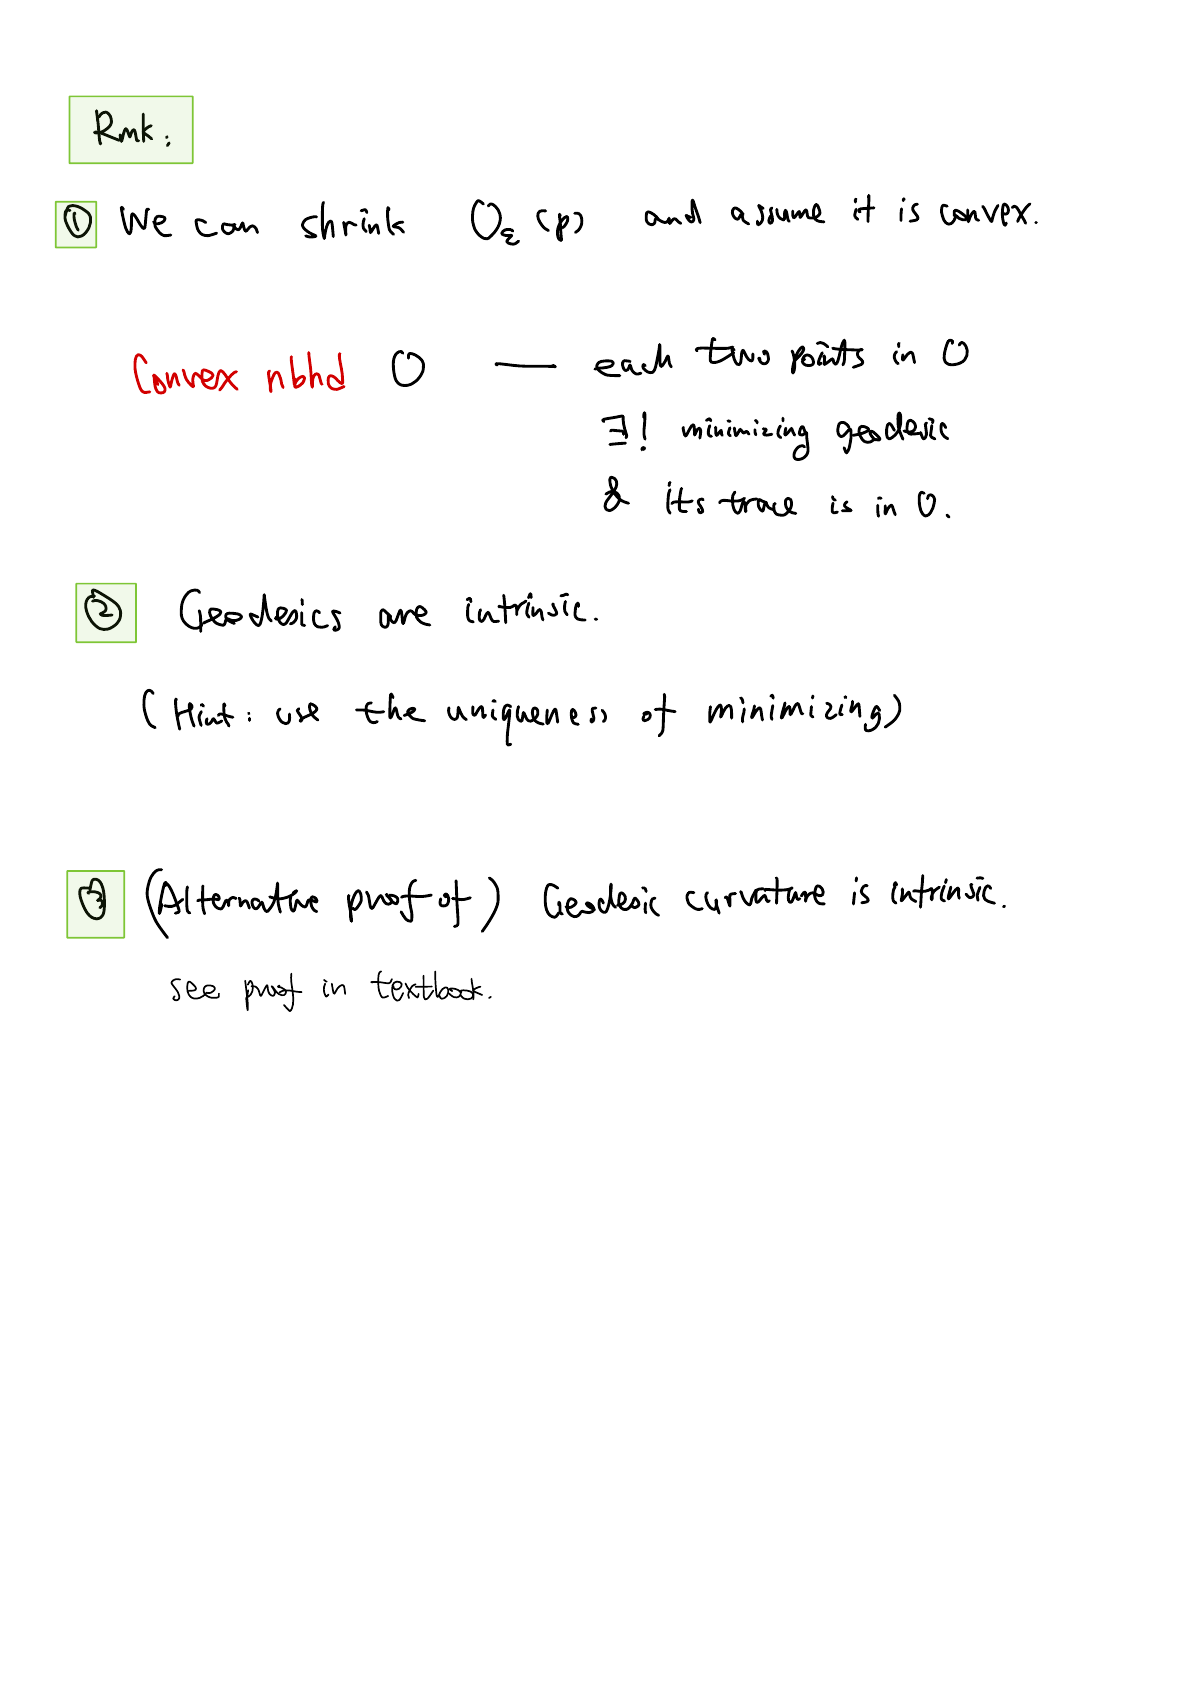 Rmk:
① We can shrink O_ε (p) and assume it is convex.
Convex nbhd O — each two points in O
∃! minimizing geodesic
& its trace is in O.
② Geodesics are intrinsic.
(Hint: use the uniqueness of minimizing)
③ (Alternative proof of) Geodesic curvature is intrinsic.
see proof in textbook.